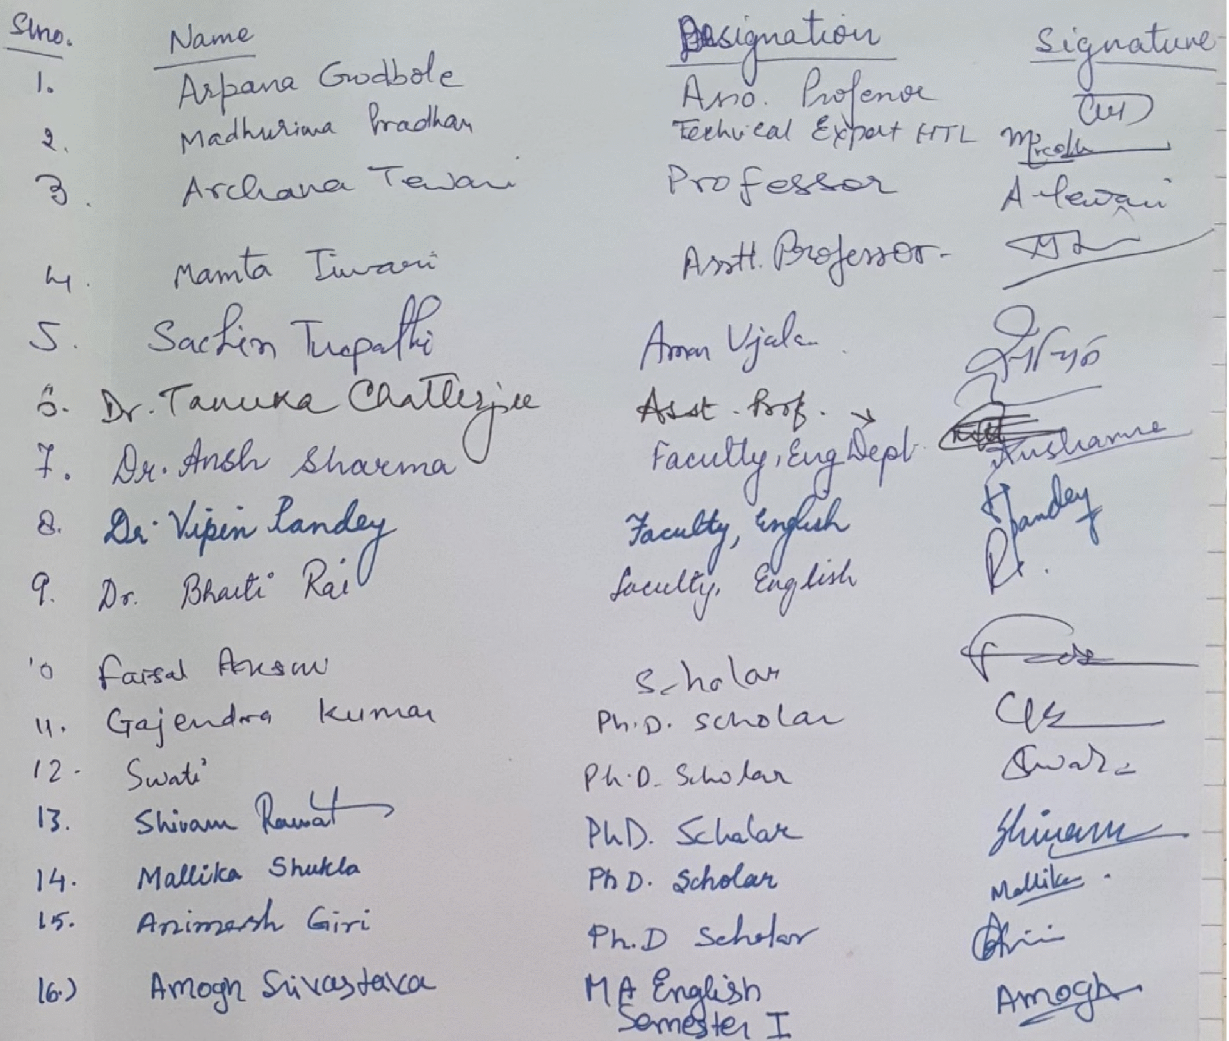 Slno. Name Designation Signature
1. Arpana Godbole Asso. Professor
2. Madhurima Pradhan Technical Expert HTL
3. Archana Tewari Professor A Tewari
4. Mamta Tiwari Asstt. Professor-
5. Sachin Tripathi Amar Ujala
6. Dr. Tanuka Chatterjee Asst. Prof.
7. Dr. Ansh Sharma Faculty, Eng Dept.
8. Dr. Vipin Pandey Faculty, English Pandey
9. Dr. Bharti Rai faculty, English
10 Faisal Scholar
11. Gajendra Kumar Ph.D. scholar
12. Swati Ph.D. Scholar Swati
13. Shivam Rawat PhD. Scholar Shivam
14. Mallika Shukla Ph D. Scholar Mallika
15. Animesh Giri Ph.D Scholar
16.) Amogh Srivastava MA English Amogh
Semester I